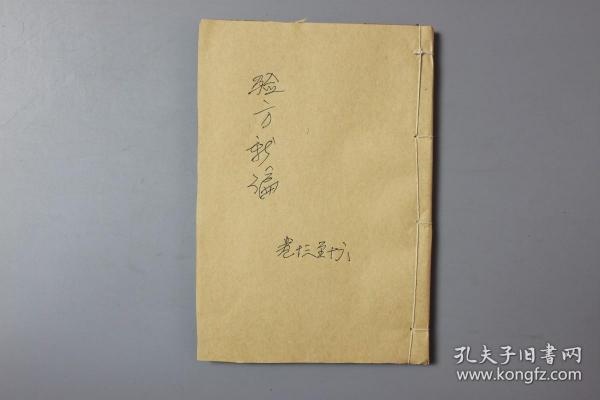 验方新编
卷十三至十六
孔夫子旧書网
www.kongfz.com